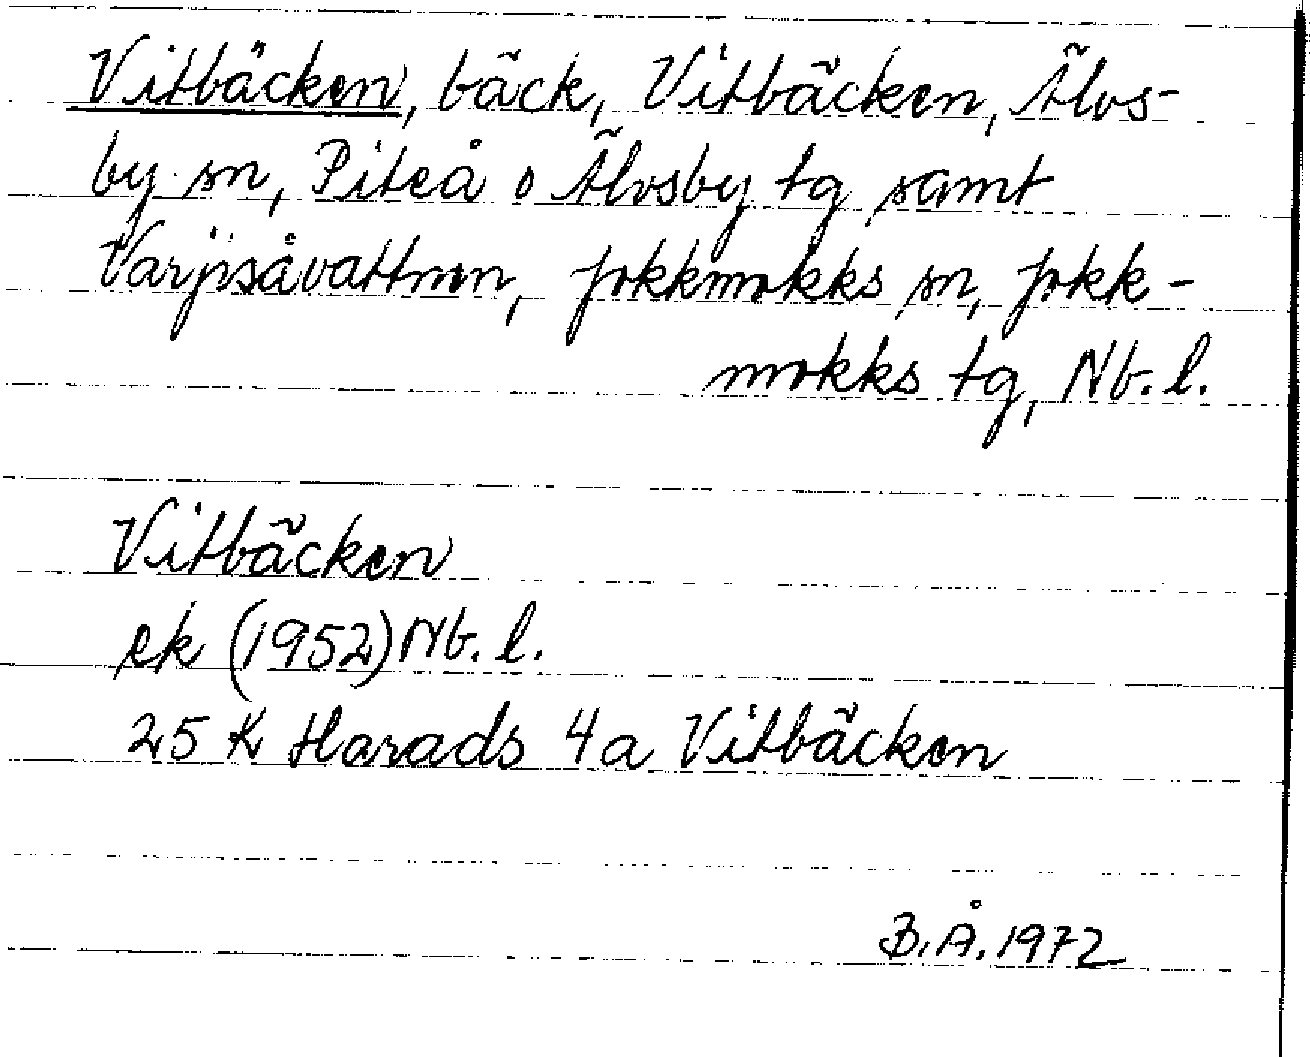 Vitbäcken, bäck, Vitbäcken, Älvs-
by sn, Piteå o Älvsby tg samt
Varjisåvattnen, Jokkmokks sn, Jokk-
mokks tg, Nb. l.
Vitbäcken
ek (1952) Nb. l.
25 K Harads 4a Vitbäcken
B.Å. 1972